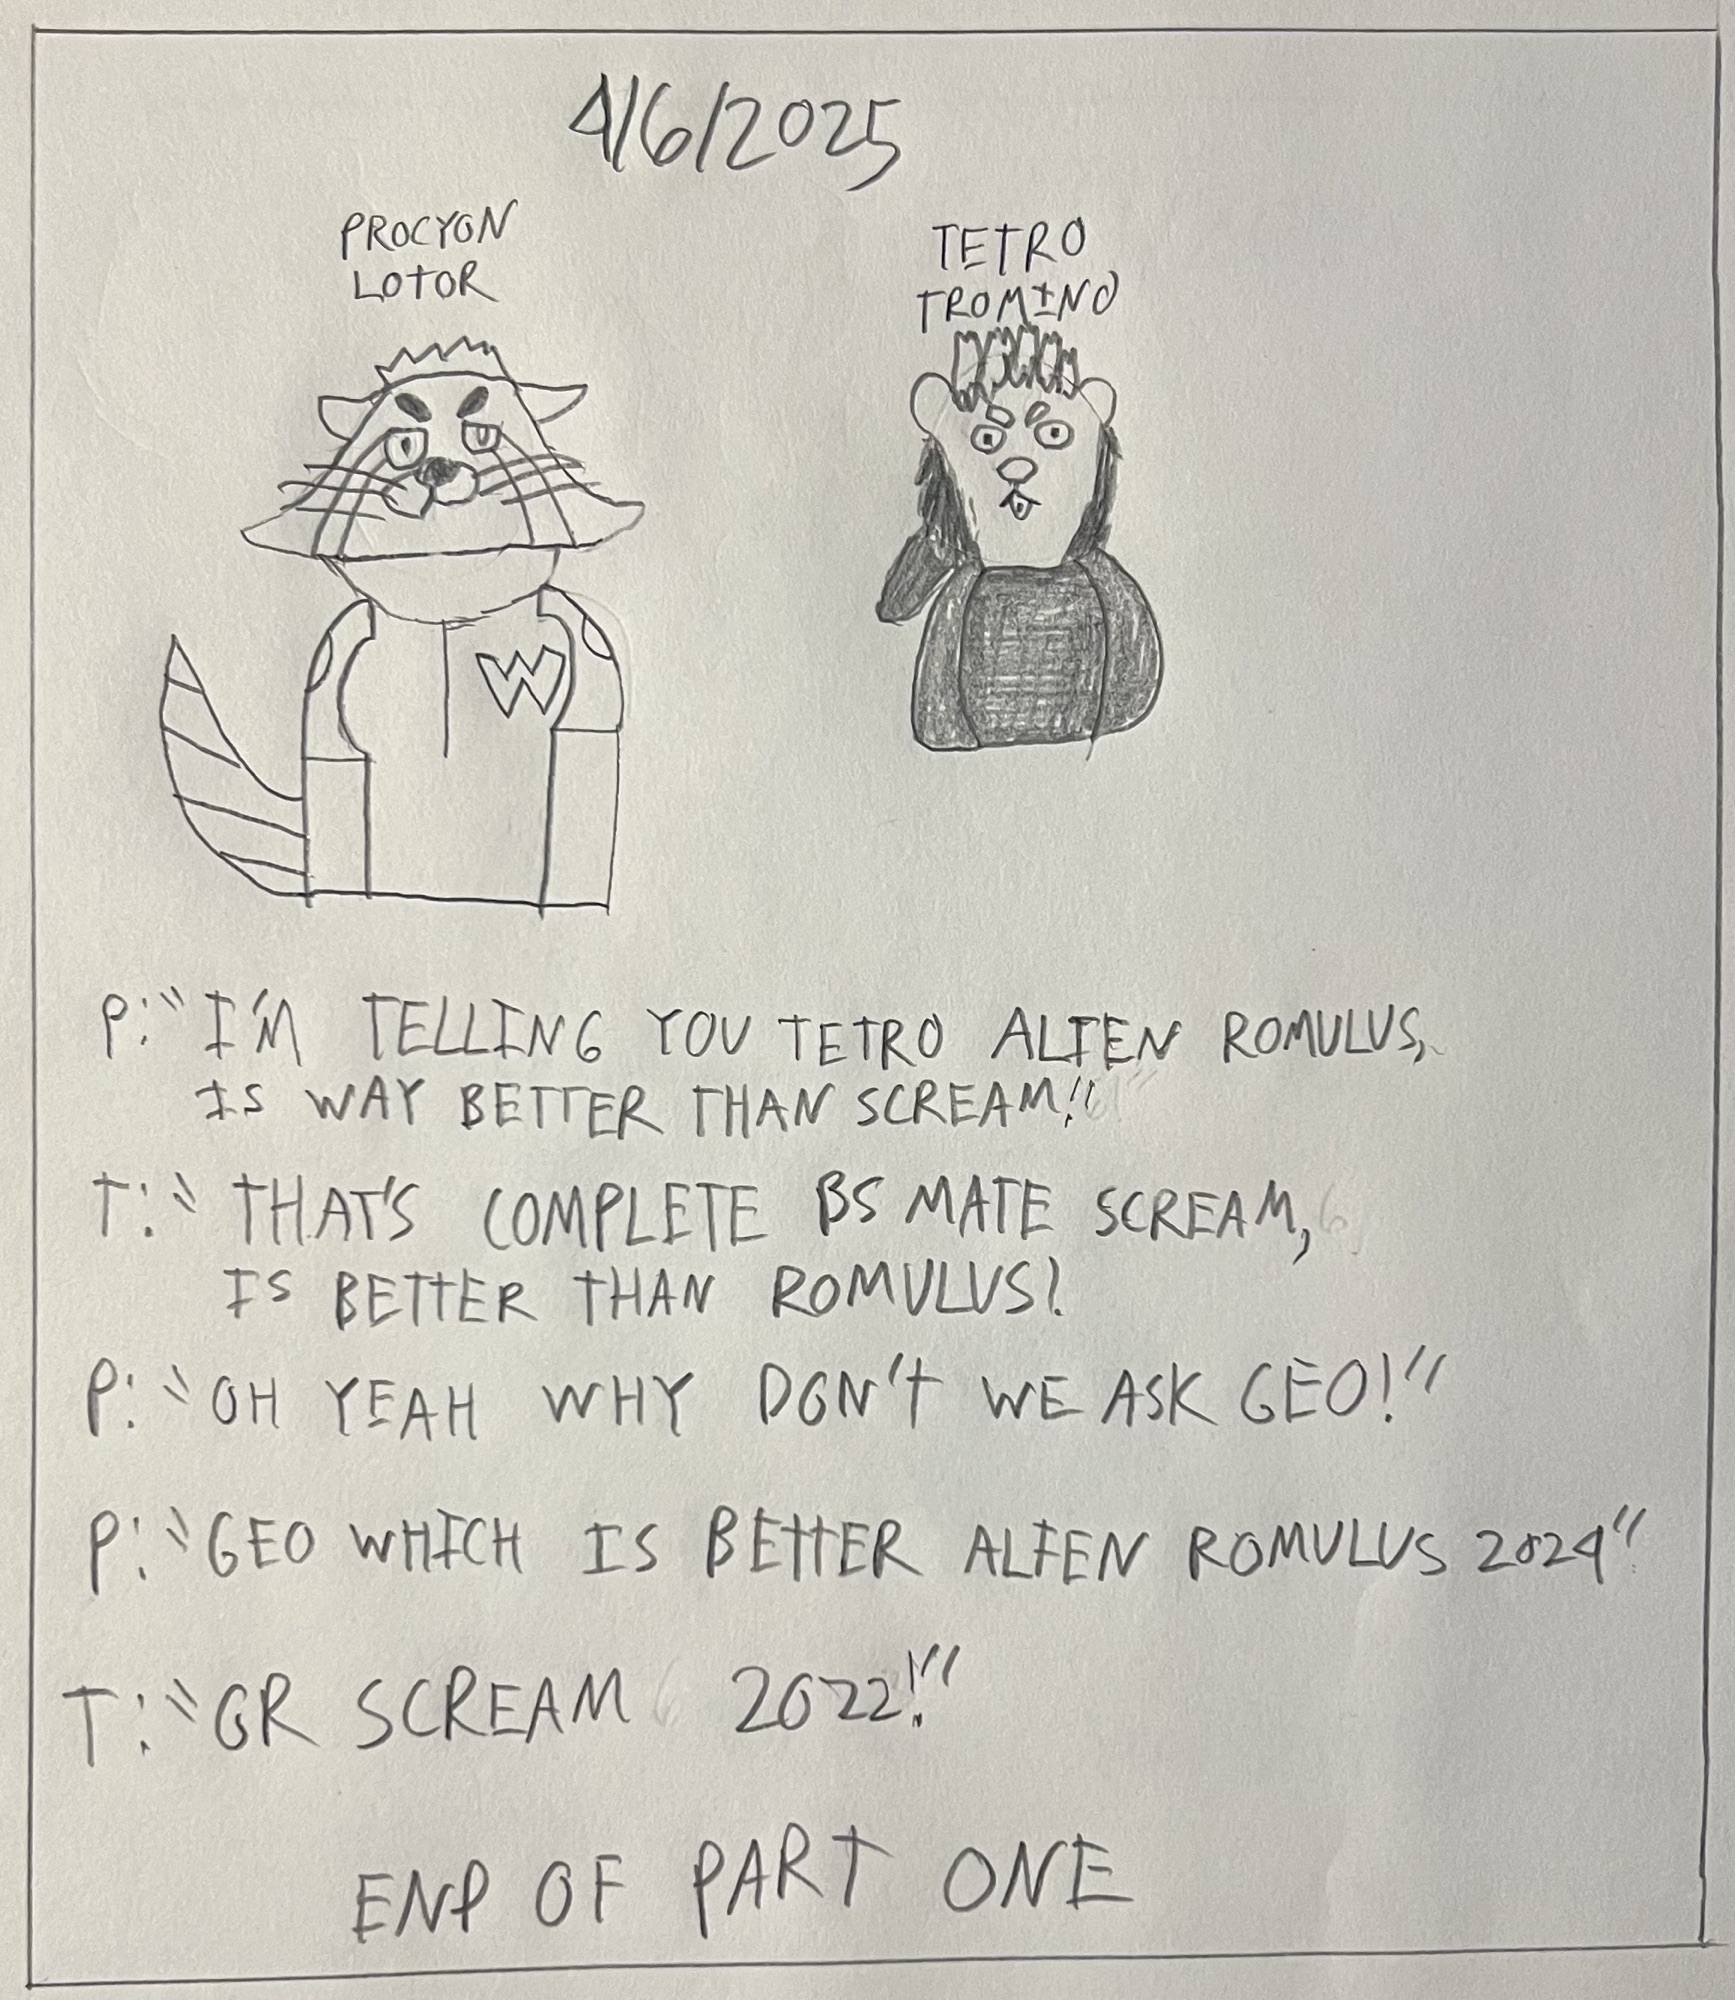 4/6/2025
PROCYON
LOTOR
TETRO
TROMINO
W
P: "I'M TELLING YOU TETRO ALIEN ROMULUS,
IS WAY BETTER THAN SCREAM!"
T: "THAT'S COMPLETE BS MATE SCREAM,
IS BETTER THAN ROMULUS!
P: "OH YEAH WHY DON'T WE ASK GEO!"
P: "GEO WHICH IS BETTER ALIEN ROMULUS 2024"
T: "OR SCREAM 2022!"
END OF PART ONE